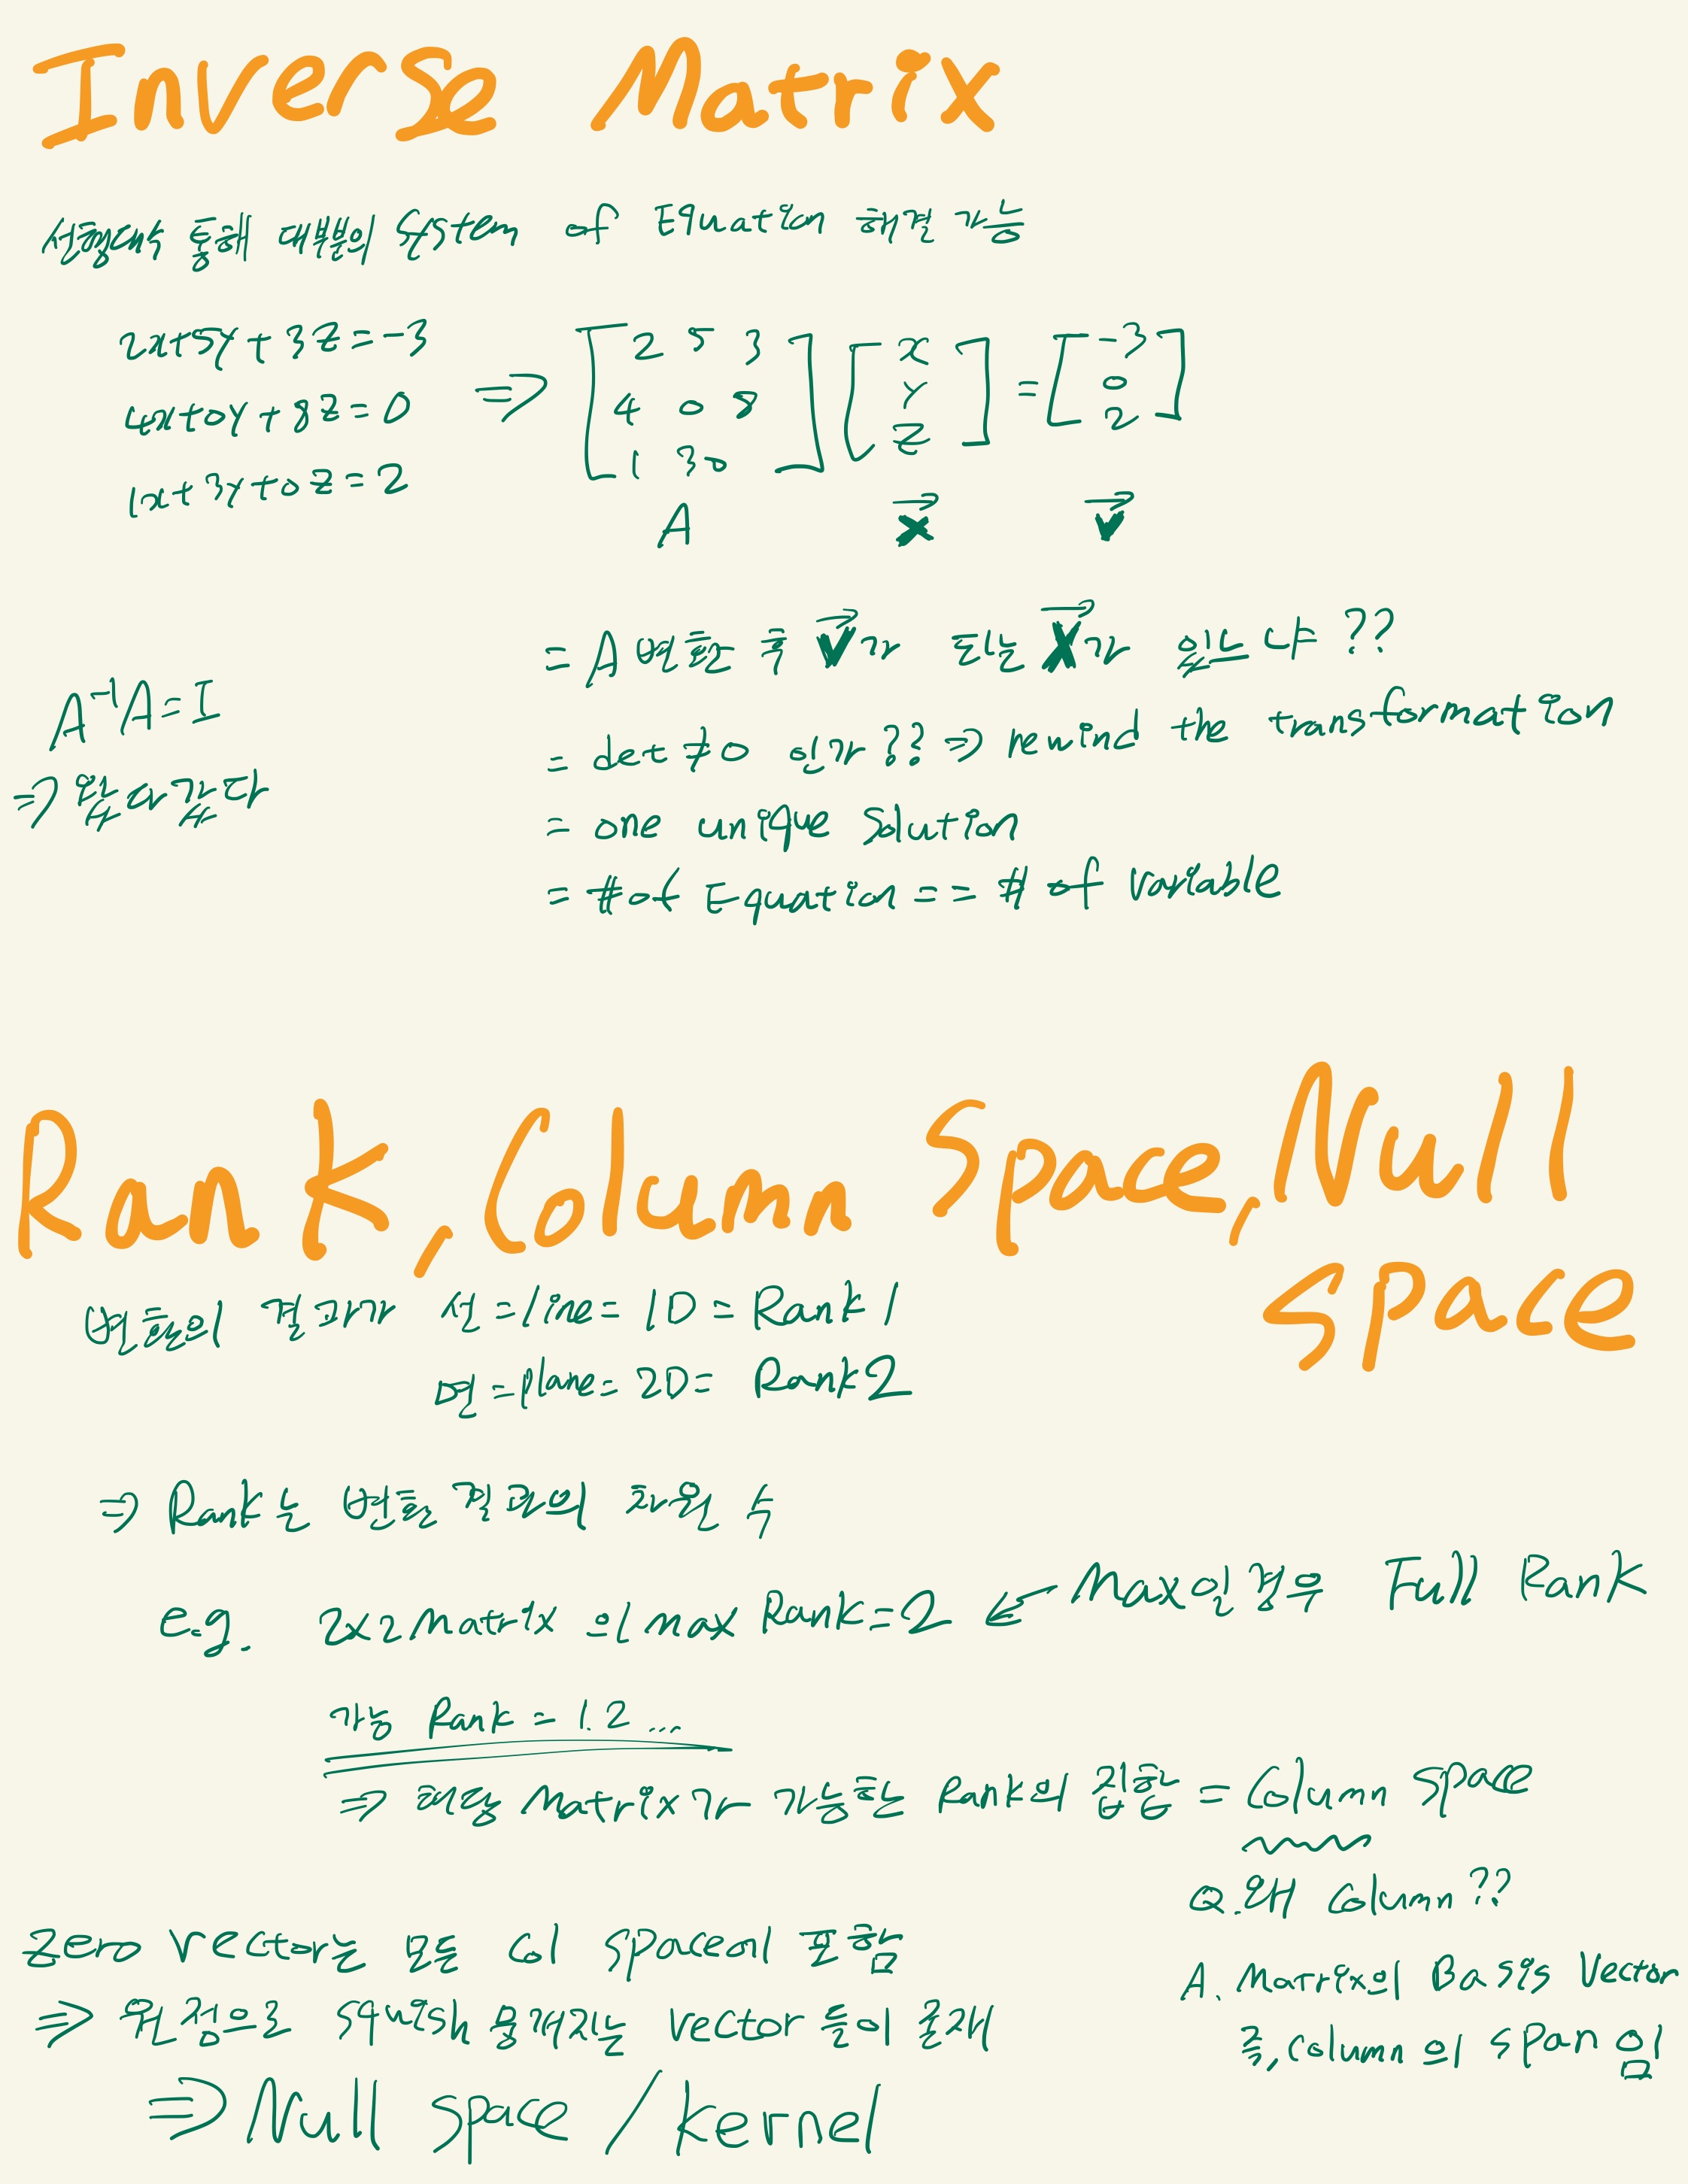 Inverse Matrix
선형대수 통해 대부분의 System of Equation 해결 가능
2x+5y+3z=-3
4x+0y+8z=0
1x+3y+0z=2
⇒ [2 5 3 / 4 0 8 / 1 3 0] [x / y / z] = [-3 / 0 / 2]
A x⃗ v⃗
= A 변환 후 v⃗가 되는 x⃗가 있느냐??
A⁻¹A=I
= det≠0 인가?? ⇒ rewind the transformation
= one unique solution
= # of Equation == # of variable
Rank, Column Space, Null Space
변환의 결과가 선=line=1D=Rank1
면=plane=2D=Rank2
⇒ Rank는 변환 결과의 차원 수
e.g. 2x2 Matrix 의 max Rank=2 ← Max일 경우 Full Rank
가능 Rank = 1.2 ...
⇒ 해당 Matrix가 가능한 Rank의 집합 = Column Space
Q.왜 Column??
A. Matrix의 Basis Vector
즉, Column의 span임
Zero Vector는 모든 Col Space에 포함
⇒ 원점으로 squish 뭉개지는 vector들이 존재
⇒ Null Space / Kernel